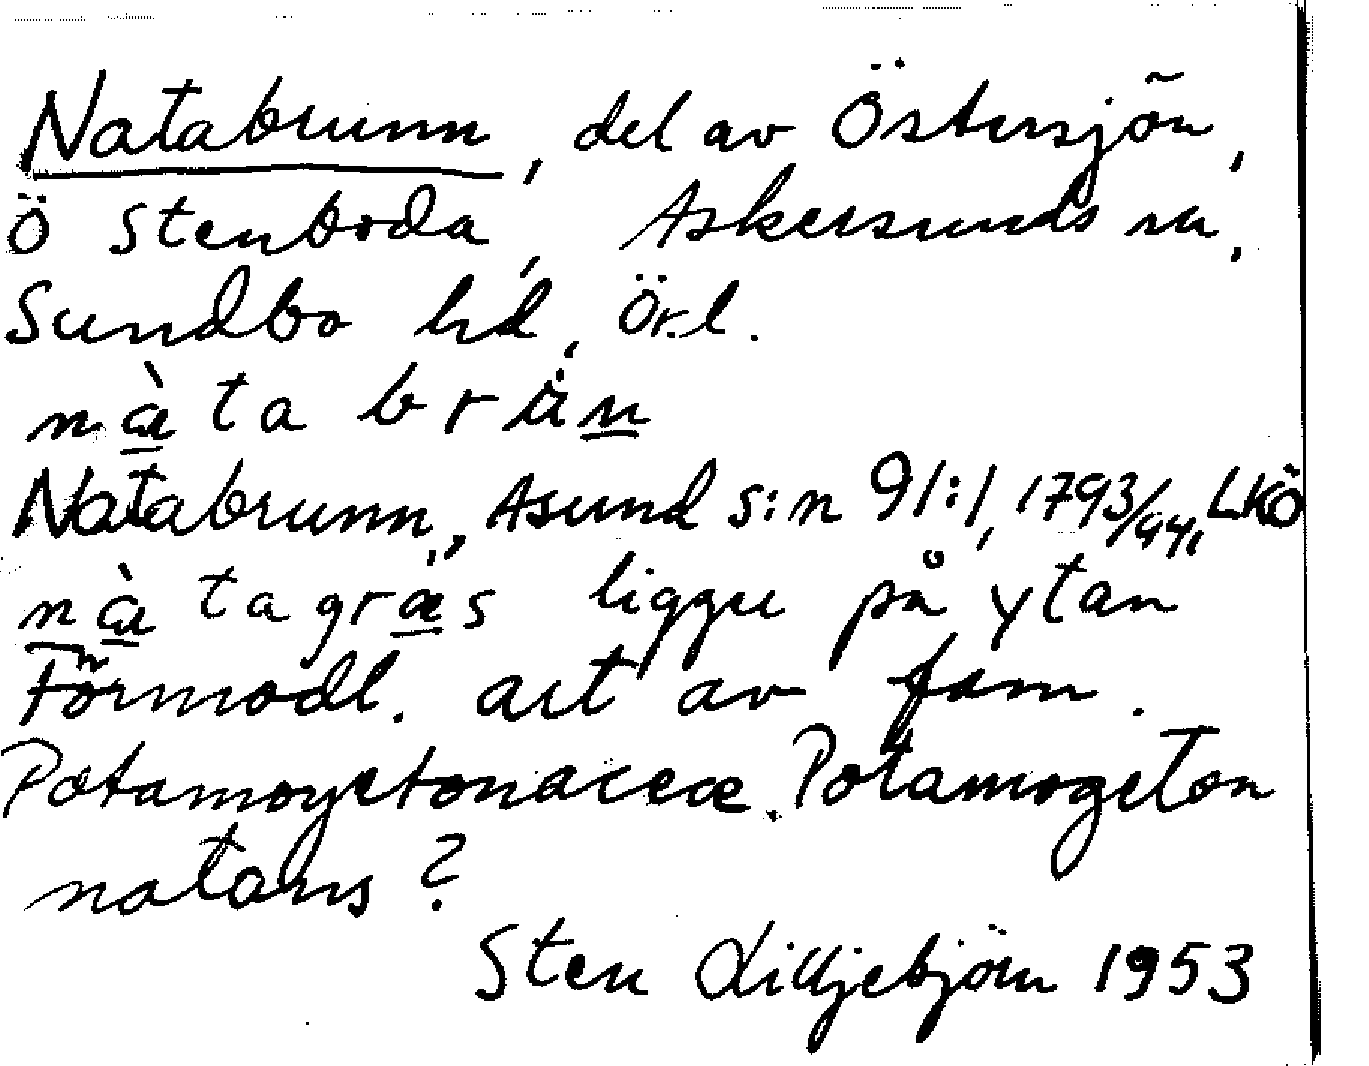 Natabrunn, del av Östersjön,
Ö Stenboda, Askersunds sn,
Sundbo hd, Örl.
Natabrunn, Åsund s:n 91:1, 1793/94, LKÖ
ligger på ytan
Förmodl. art av fam.
Potamogetonaceæ. Potamogeton
natans?
Sten Lilljebjörn 1953